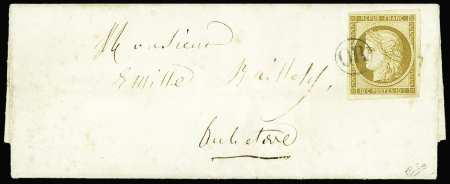 REPUB. FRANC.
OR
10 C. POSTES. 10 C.
Monsieur
Emille
Aubeterre